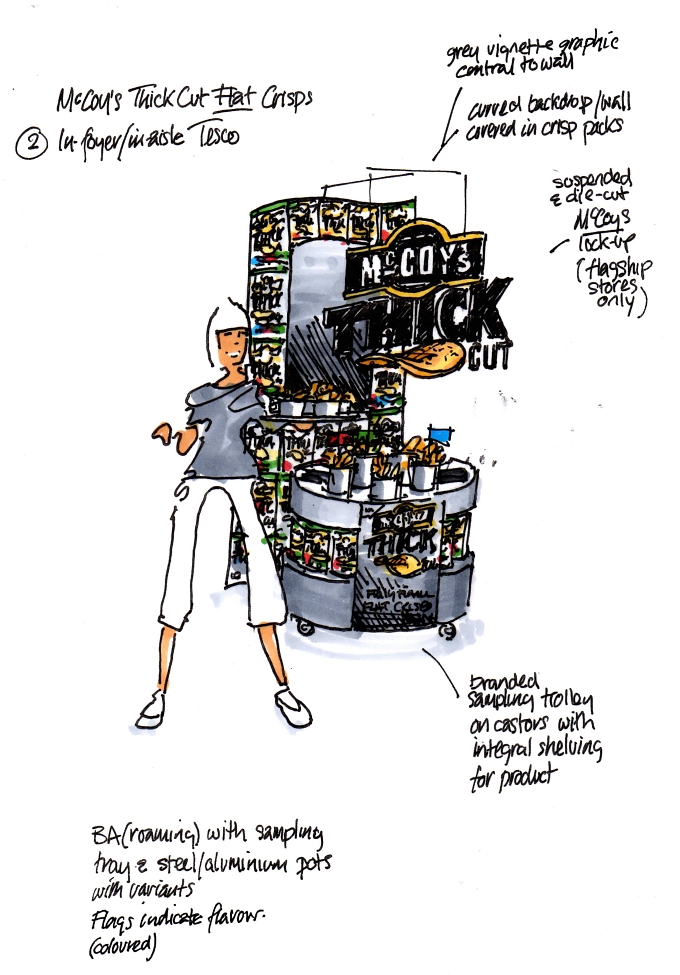 grey vignette graphic
central to wall
McCoy's Thick Cut Flat Crisps
② In-foyer/in-aisle Tesco
curved backdrop/wall
covered in crisp packs
suspended
& die-cut
McCoys
lock-up
(flagship
stores
only)
McCOY's
THICK
CUT
THICK
branded
sampling trolley
on castors with
integral shelving
for product
BA (roaming) with sampling
tray & steel/aluminium pots
with variants
Flags indicate flavour.
(coloured)